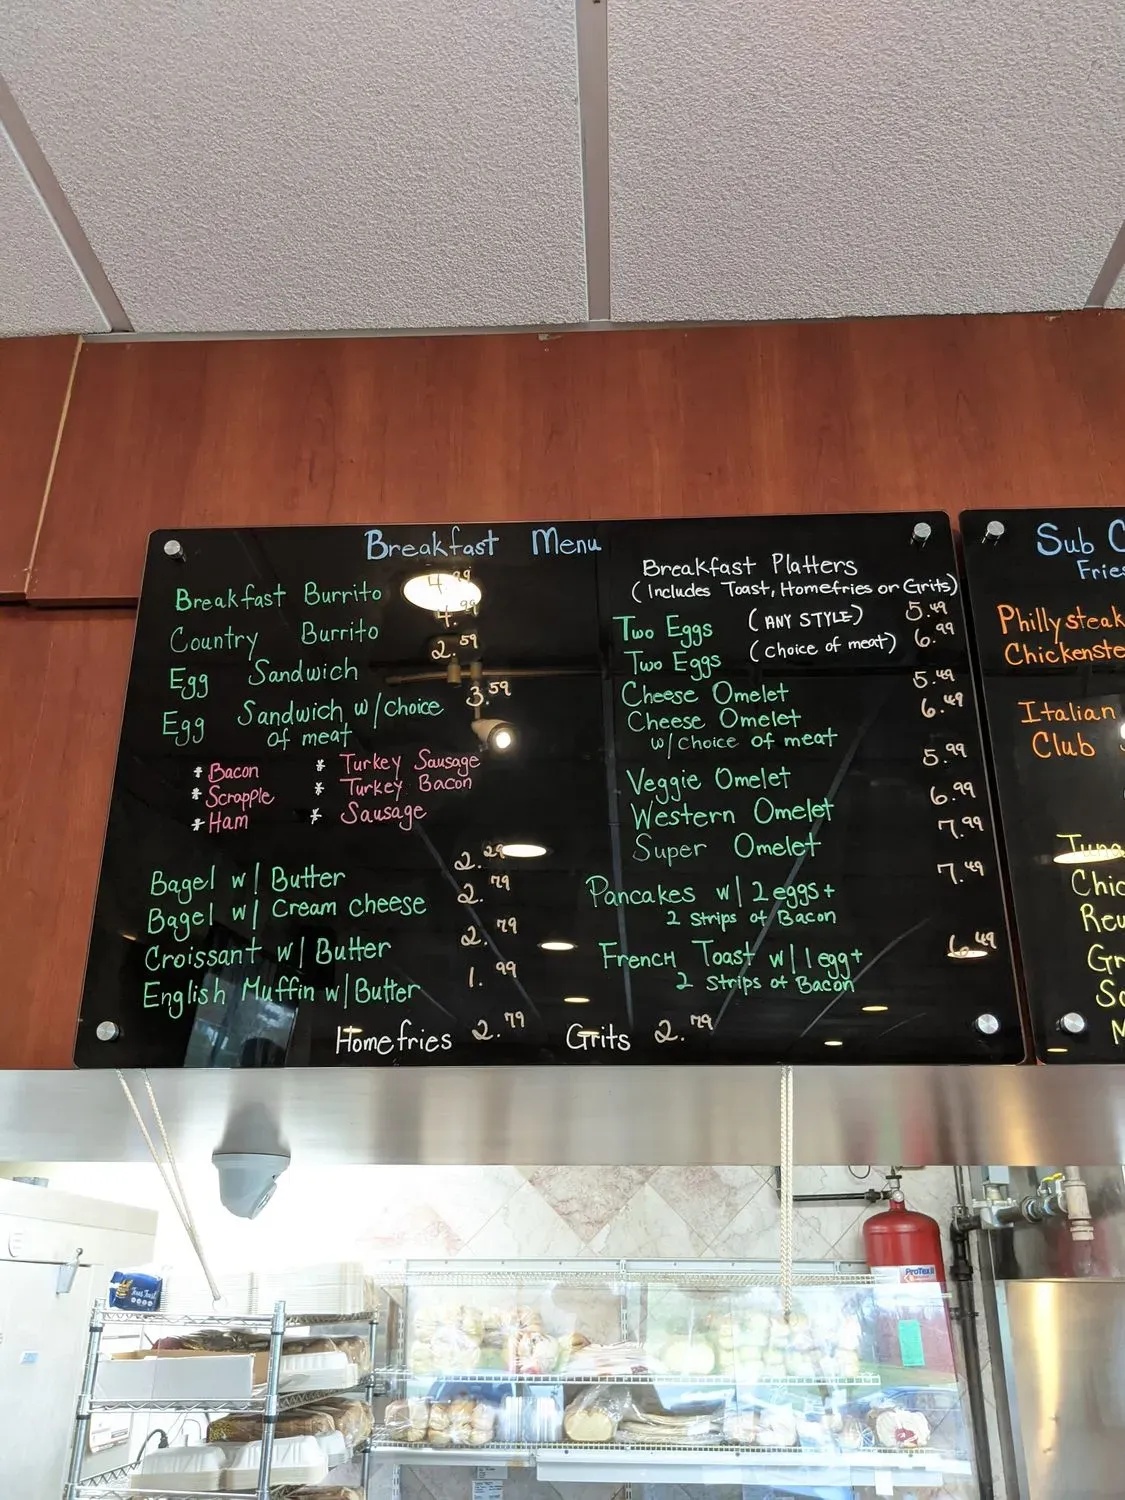 Breakfast Menu
Breakfast Burrito 4.99
Country Burrito 4.99
Egg Sandwich 2.59
Egg Sandwich w/choice 3.59
of meat
* Bacon * Turkey Sausage
* Scrapple * Turkey Bacon
* Ham * Sausage
Bagel w/ Butter 2.29
Bagel w/ Cream cheese 2.79
Croissant w/ Butter 2.79
English Muffin w/Butter 1.99
Homefries 2.79 Grits 2.79
Breakfast Platters
(Includes Toast, Homefries or Grits)
Two Eggs (ANY STYLE) 5.49
Two Eggs (choice of meat) 6.99
Cheese Omelet 5.49
Cheese Omelet 6.49
w/choice of meat
Veggie Omelet 5.99
Western Omelet 6.99
Super Omelet 7.99
Pancakes w/ 2 eggs + 7.49
2 Strips of Bacon
French Toast w/ 1 egg + 6.49
2 Strips of Bacon
Sub
Fries
Philly steak
Chickenste
Italian
Club
Tuna
Chic
Reu
Gr
M
ProTex II